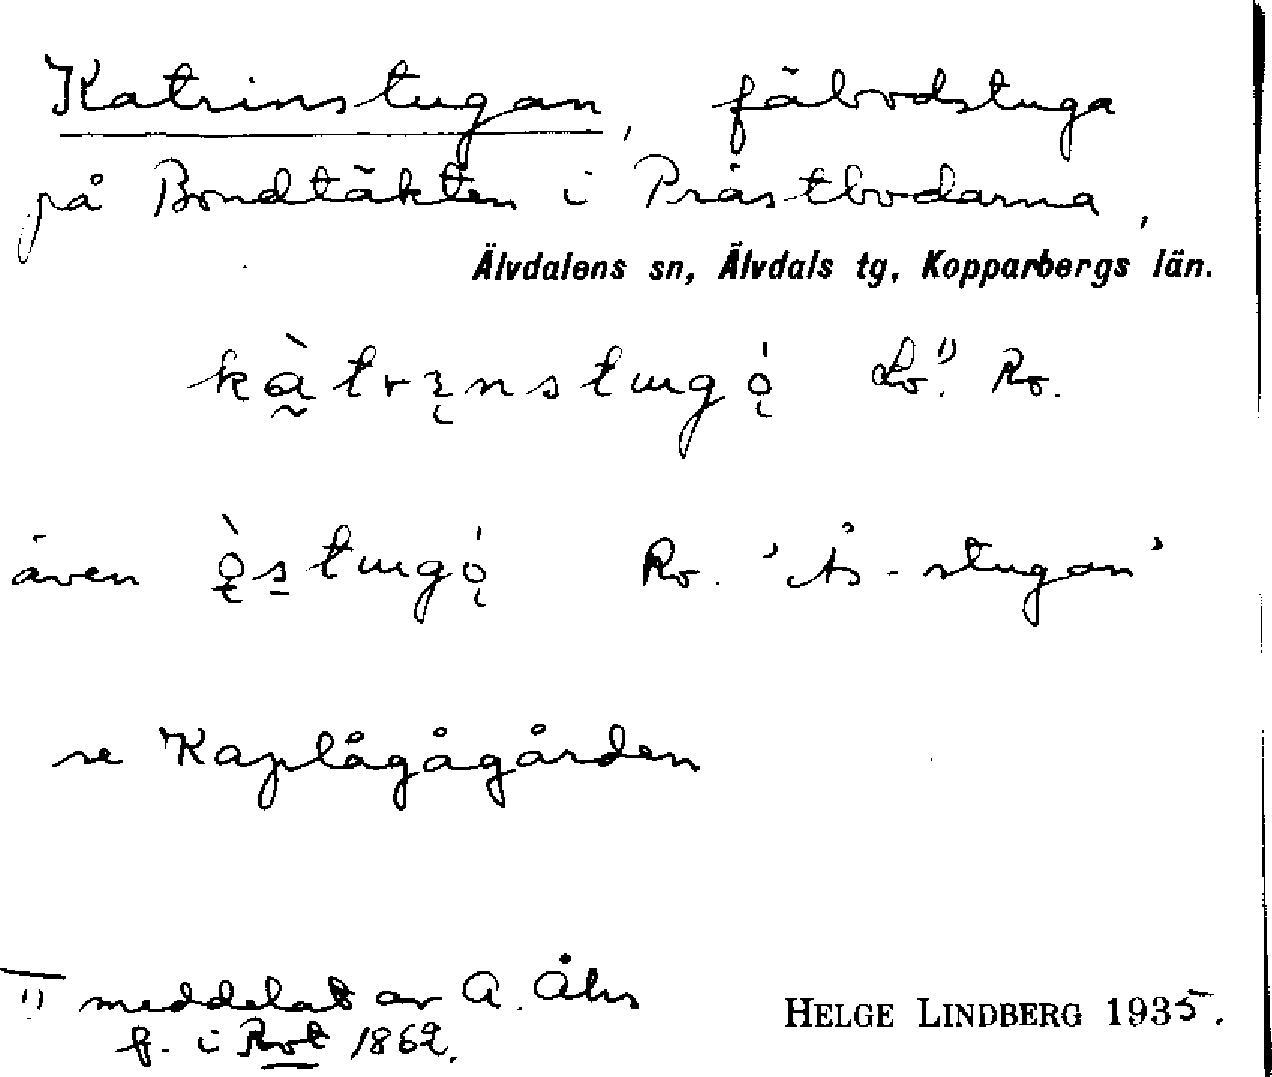 Katrinstugan, fäbodstuga
på Bondtäkten i Prästbodarna,
Älvdalens sn, Älvdals tg, Kopparbergs län.
kà̰trı̨nstugǫ́ Lo.¹⁾ Ro.
även
Ro. 'Ås-stugan'
se Kaplågågården
¹⁾ meddelat av A. Åhs
f. i Rot 1862.
HELGE LINDBERG 1935.